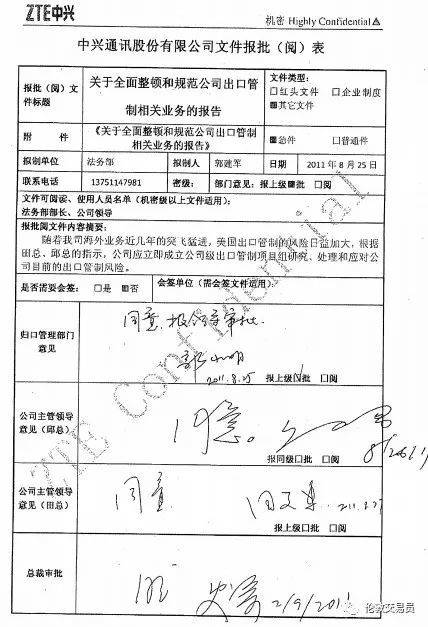 ZTE中兴
机密 Highly Confidential△
中兴通讯股份有限公司文件报批（阅）表
报批（阅）文件标题
关于全面整顿和规范公司出口管制相关业务的报告
文件类型：
□红头文件 □企业制度
■其它文件
附 件
《关于全面整顿和规范公司出口管制相关业务的报告》
■急件 □普通件
拟制单位 法务部 拟制人 郭建军 日期 2011 年 8 月 25 日
联系电话 13751147981 密级： 部门意见：报上级■批 □阅
文件可阅读、使用人员名单（机密级以上文件适用）：
法务部部长、公司领导
报批阅文件内容摘要：
随着我司海外业务近几年的突飞猛进，美国出口管制的风险日益加大，根据
田总、邱总的指示，公司应立即成立公司级出口管制项目组研究、处理和应对公
司目前的出口管制风险。
是否需要会签： □是 ■否
会签单位（需会签文件适用）：
归口管理部门意见
同意，报领导审批.
2011.8.25
报上级□批 □阅
公司主管领导意见（邱总）
同意。
报同级□批 □阅
公司主管领导意见（田总）
同意
报上级□批 □阅
总裁审批
2/9/2011
ZTE Confidential
伦敦交易员